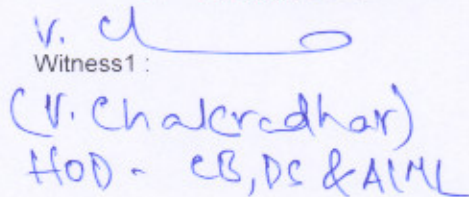 V. Ch
Witness1 :
(V. Chakradhar)
HOD - CB, DS & AIML